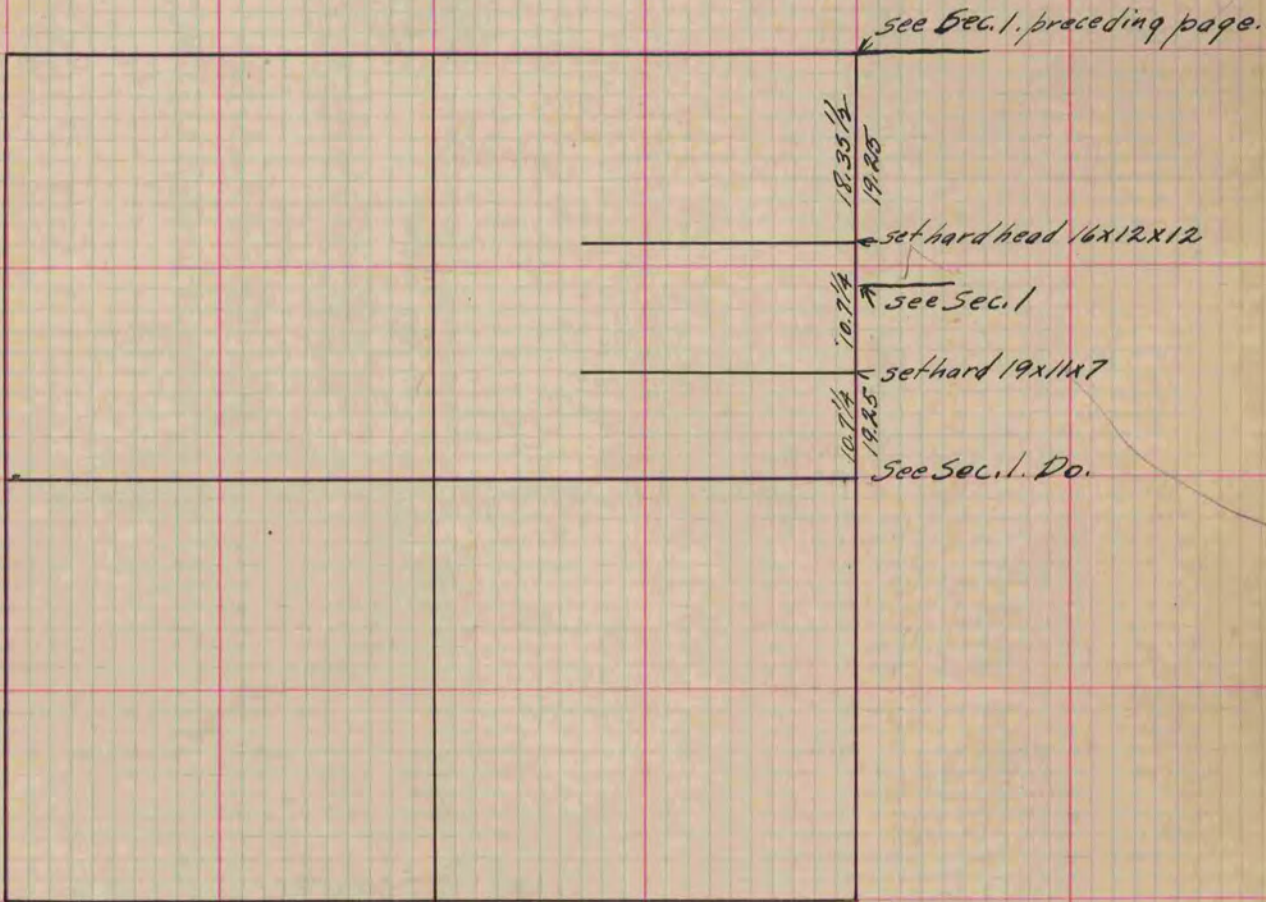 see Sec. 1. preceding page.
18.35 1/2
19.25
set hard head 16x12x12
10.7 1/4
see Sec. 1
set hard 19x11x7
10.7 1/4
19.25
See Sec. 1. Do.